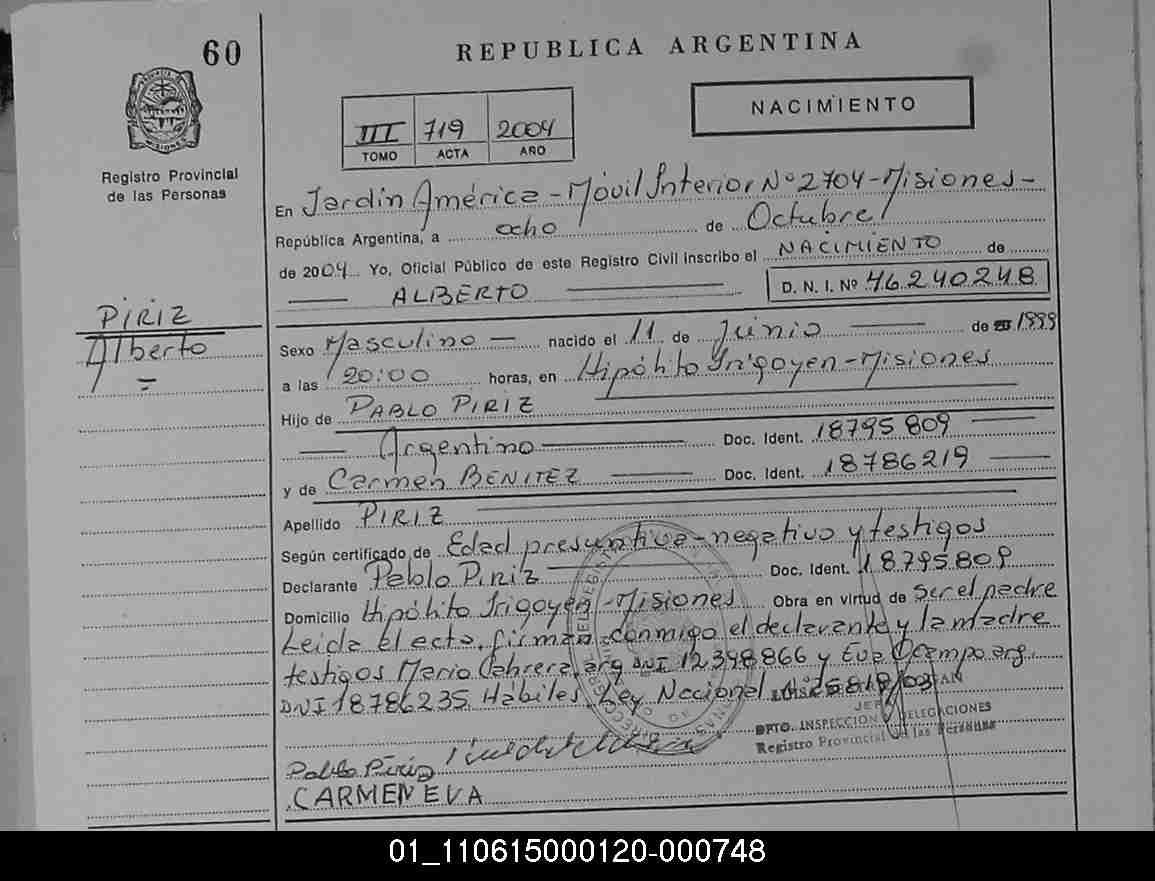 60
REPUBLICA ARGENTINA
NACIMIENTO
III 719 2004
TOMO ACTA AÑO
MISIONES
Registro Provincial
de las Personas
En Jardín América - Móvil Interior Nº 2704 - Misiones -
República Argentina, a ocho de Octubre
de 2004 Yo, Oficial Público de este Registro Civil inscribo el NACIMIENTO de
ALBERTO D. N. I. Nº 46.240.248
PIRIZ
Alberto
Sexo Masculino nacido el 11 de Junio de 1999
a las 20:00 horas, en Hipólito Irigoyen - Misiones
Hijo de PABLO PIRIZ
Argentino Doc. Ident. 18795809
y de Carmen BENITEZ Doc. Ident. 18786219
Apellido PIRIZ
Según certificado de Edad presuntiva - negativo y testigos
Declarante Pablo Piriz Doc. Ident. 18795809
Domicilio Hipólito Irigoyen - Misiones Obra en virtud de ser el padre
Leida el acta, firman conmigo el declarante y la madre
testigos Mario Cabrera arg DNI 12.398.866 y Eva Ocampo arg.
DNI 18786235 Habiles Ley Nacional Nº 25818/003
DPTO. INSPECCION DELEGACIONES
Registro Provincial de las Personas
Pablo Piriz
CARMEN EVA
01_110615000120-000748